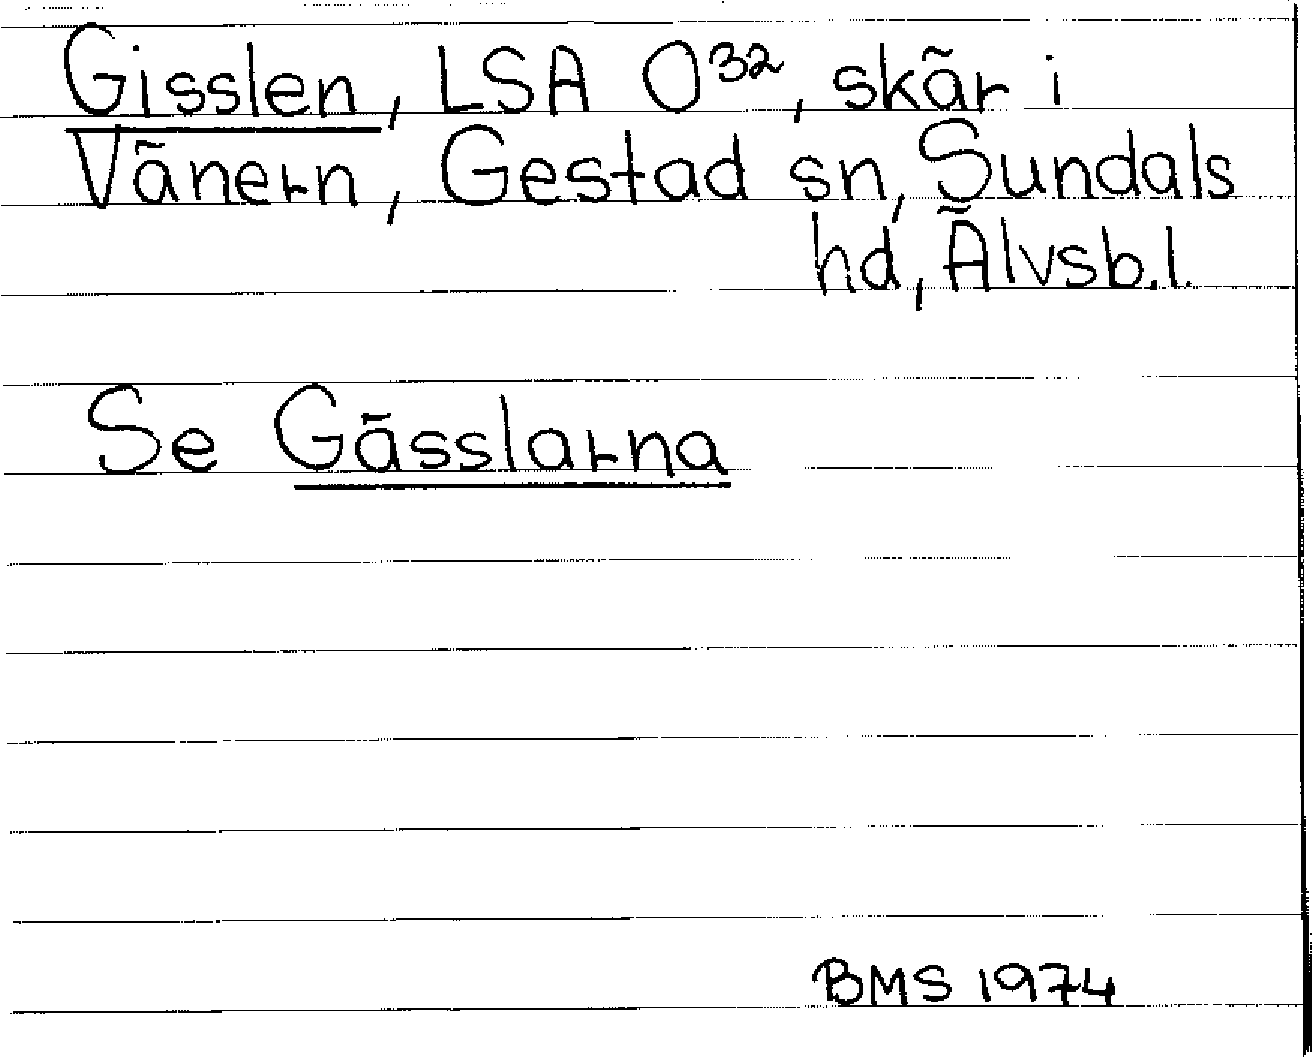 Gisslen, LSA O32, skär i
Vänern, Gestad sn, Sundals
hd, Älvsb.l.
Se Gässlarna
BMS 1974